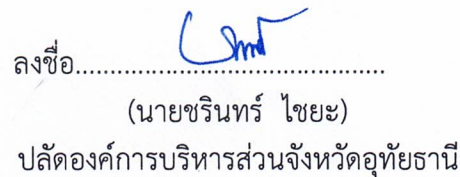 ลงชื่อ..........................................
(นายชรินทร์ ไชยะ)
ปลัดองค์การบริหารส่วนจังหวัดอุทัยธานี